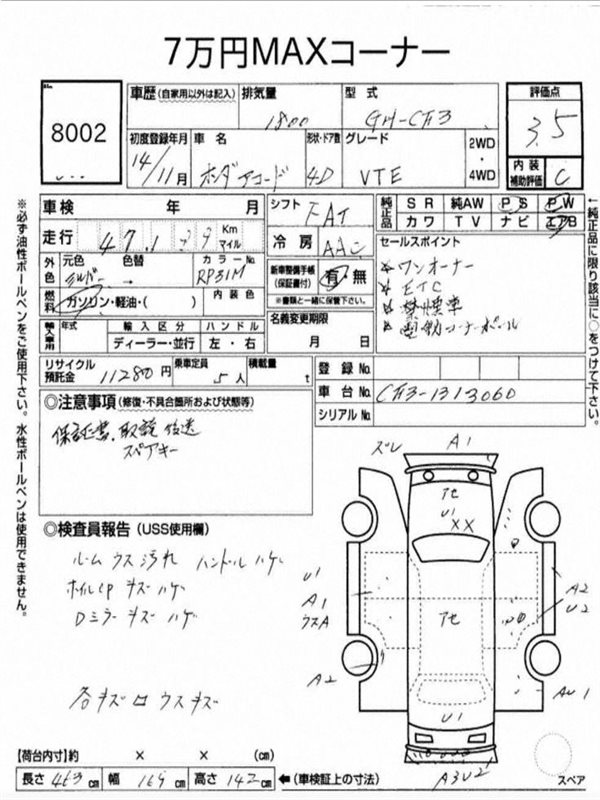 7万円MAXコーナー
8002
車歴 (自家用以外は記入) 排気量 型式
1800 GH-CF3
評価点
3.5
初度登録年月 車名 形状・ドア数 グレード 2WD・4WD
14/11月 ホンダアコード 4D VTE
内装補助評価 C
車検 年 月
シフト FAT
純正品 SR 純AW PS PW
カワ TV ナビ エアB
走行 Km マイル
冷房 AAC
セールスポイント
ワンオーナー
ETC
禁煙車
電動コーナーポール
外色 元色 色替 カラーNo.
シルバー RP31M
新車整備手帳(保証書付) 有・無
※書類と一緒に保管下さい。
燃料 ガソリン・軽油・( ) 内装色
名義変更期限
月 日
輸入車用 年式 輸入区分 ハンドル
ディーラー・並行 左・右
リサイクル預託金 11280円 乗車定員 5人 積載量 t
登録No.
車台No. CF3-1313060
シリアルNo.
◎注意事項 (修復・不具合箇所および状態等)
保証書、取説 後送
スペアキー
◎検査員報告 (USS使用欄)
ルーム ウス汚れ ハンドル ハゲ
ホイルCP キズ ハゲ
Dミラー キズ ハゲ
各キズ ウスキズ
ズレ A1
U1
XX
U1
A1
ウスA
A2
A2
U2
AU1
U1
A3U2
スペア
【荷台内寸】約 × × (cm)
長さ 463 cm 幅 169 cm 高さ 142 cm ←(車検証上の寸法)
※必ず油性ボールペンをご使用下さい。水性ボールペンは使用できません。
←純正品に限り該当に○をつけて下さい。